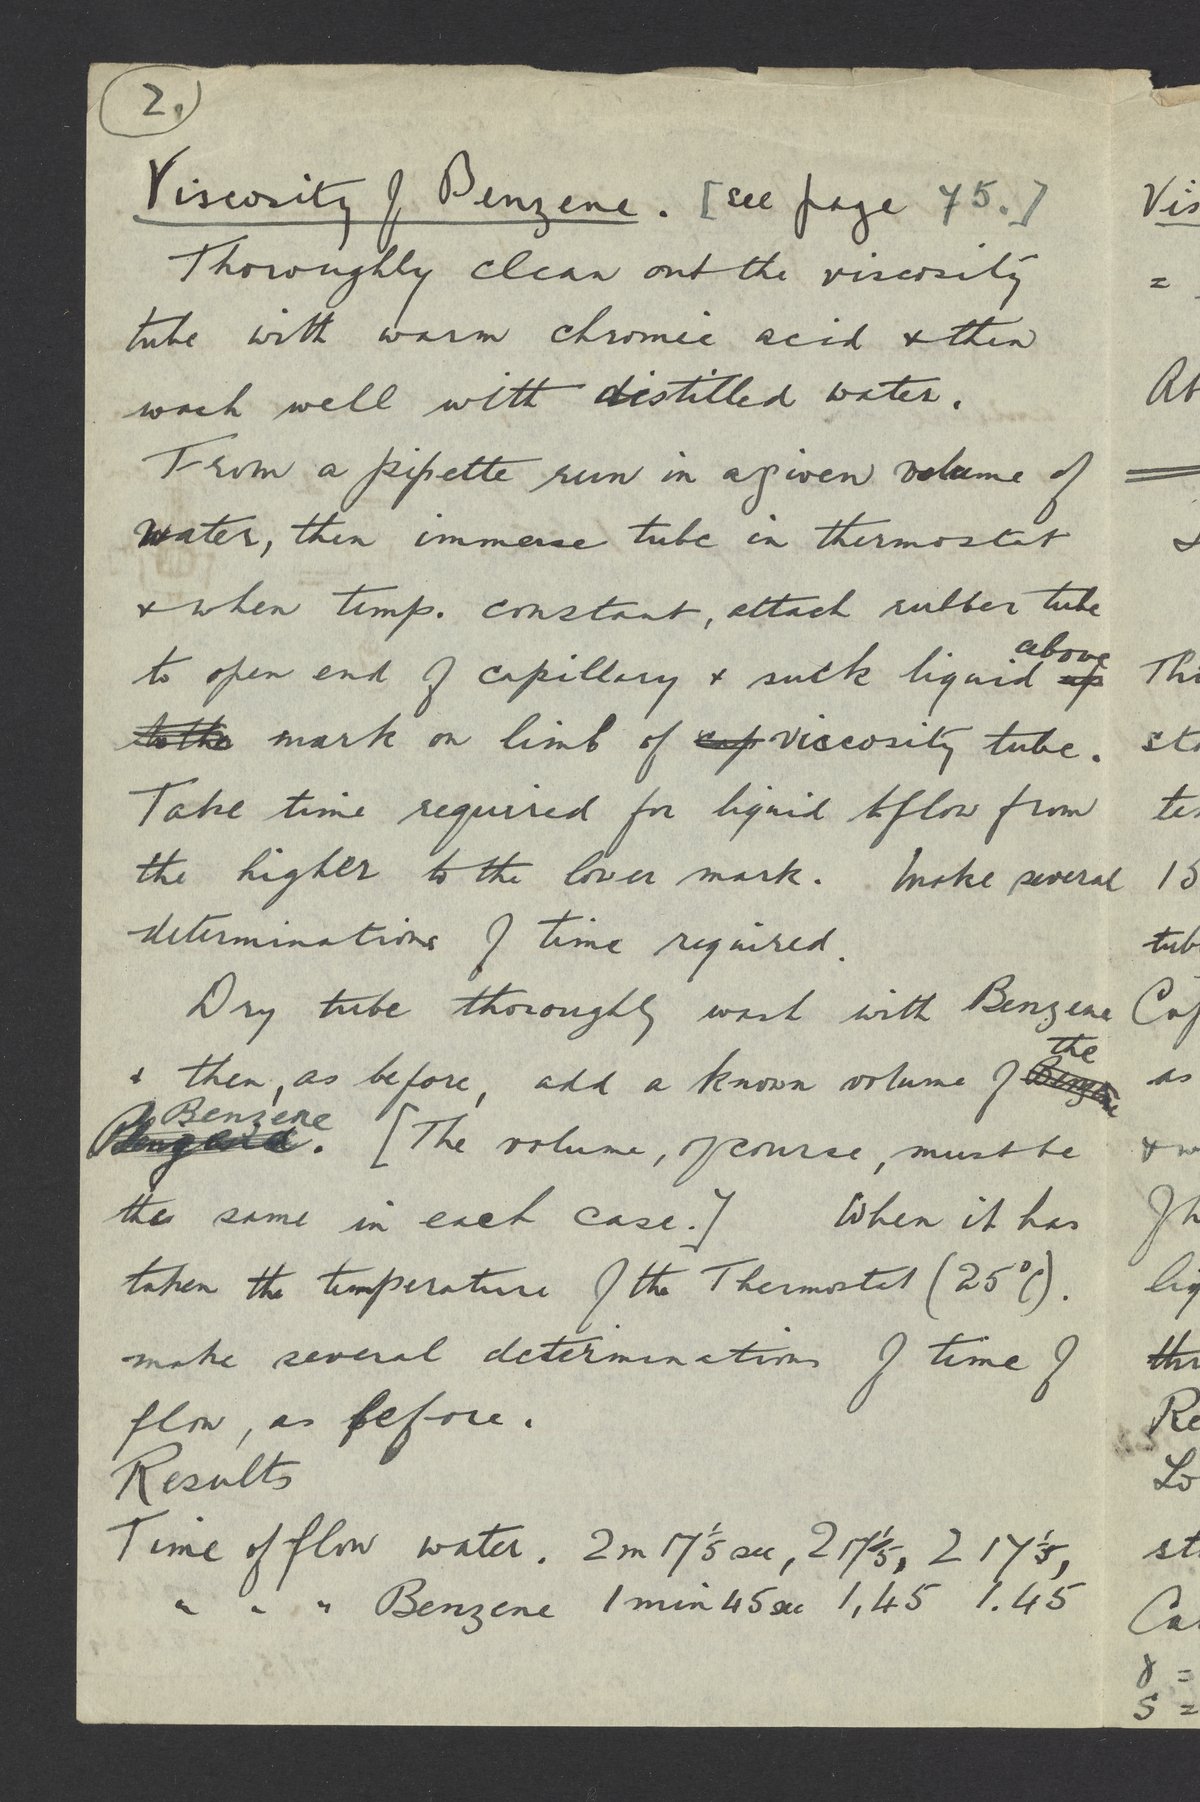 2.
Viscosity of Benzene. [see page 45.]
Thoroughly clean out the viscosity
tube with warm chromic acid & then
wash well with distilled water.
From a pipette run in a given volume of
water, then immerse tube in thermostat
& when temp. constant, attach rubber tube
to open end of capillary & suck liquid up above
to the mark on limb of cap viscosity tube.
Take time required for liquid to flow from
the higher to the lower mark. Make several
determinations of time required.
Dry tube thoroughly wash with Benzene
& then, as before, add a known volume of Benzene the
Benzene. [The volume, of course, must be
the same in each case.] When it has
taken the temperature of the Thermostat (25°C).
make several determinations of time of
flow, as before.
Results
Time of flow water. 2m 17 1/5 sec, 2 17 1/5, 2 17 1/5,
" " " Benzene 1 min 45 sec 1,45 1.45
Vis
=
Thi
&
as
& w
Re
Lo
st
γ =
S =